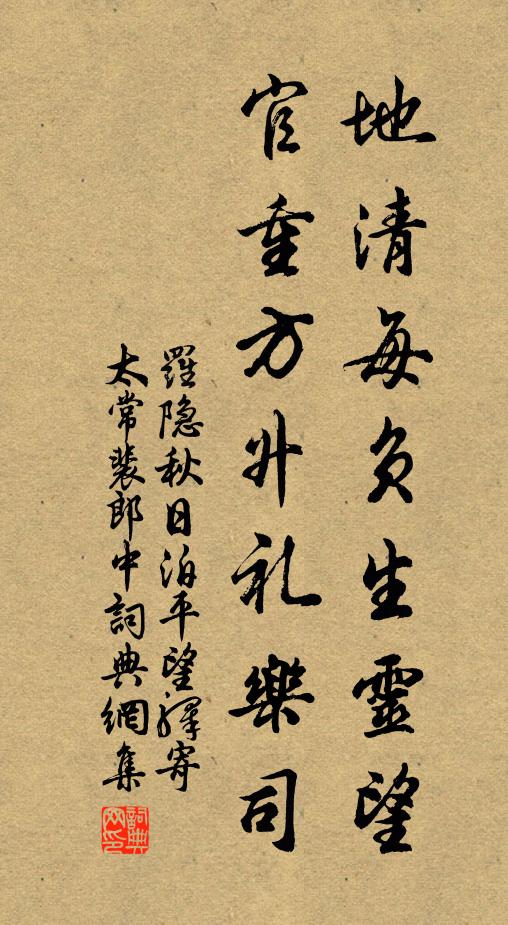 地清每負生靈望
官重方升礼樂司
羅隐秋日泊平望驛寄
太常裴郎中詞典網集
詞典网印